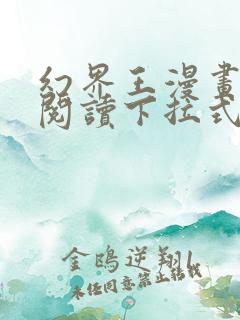 幻界王漫畫
閱讀下拉式
金鴟逆翔
未经同意禁止转载